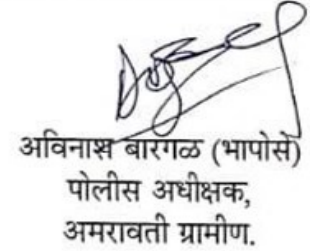 अविनाश बारगळ (भापोसे)
पोलीस अधीक्षक,
अमरावती ग्रामीण.